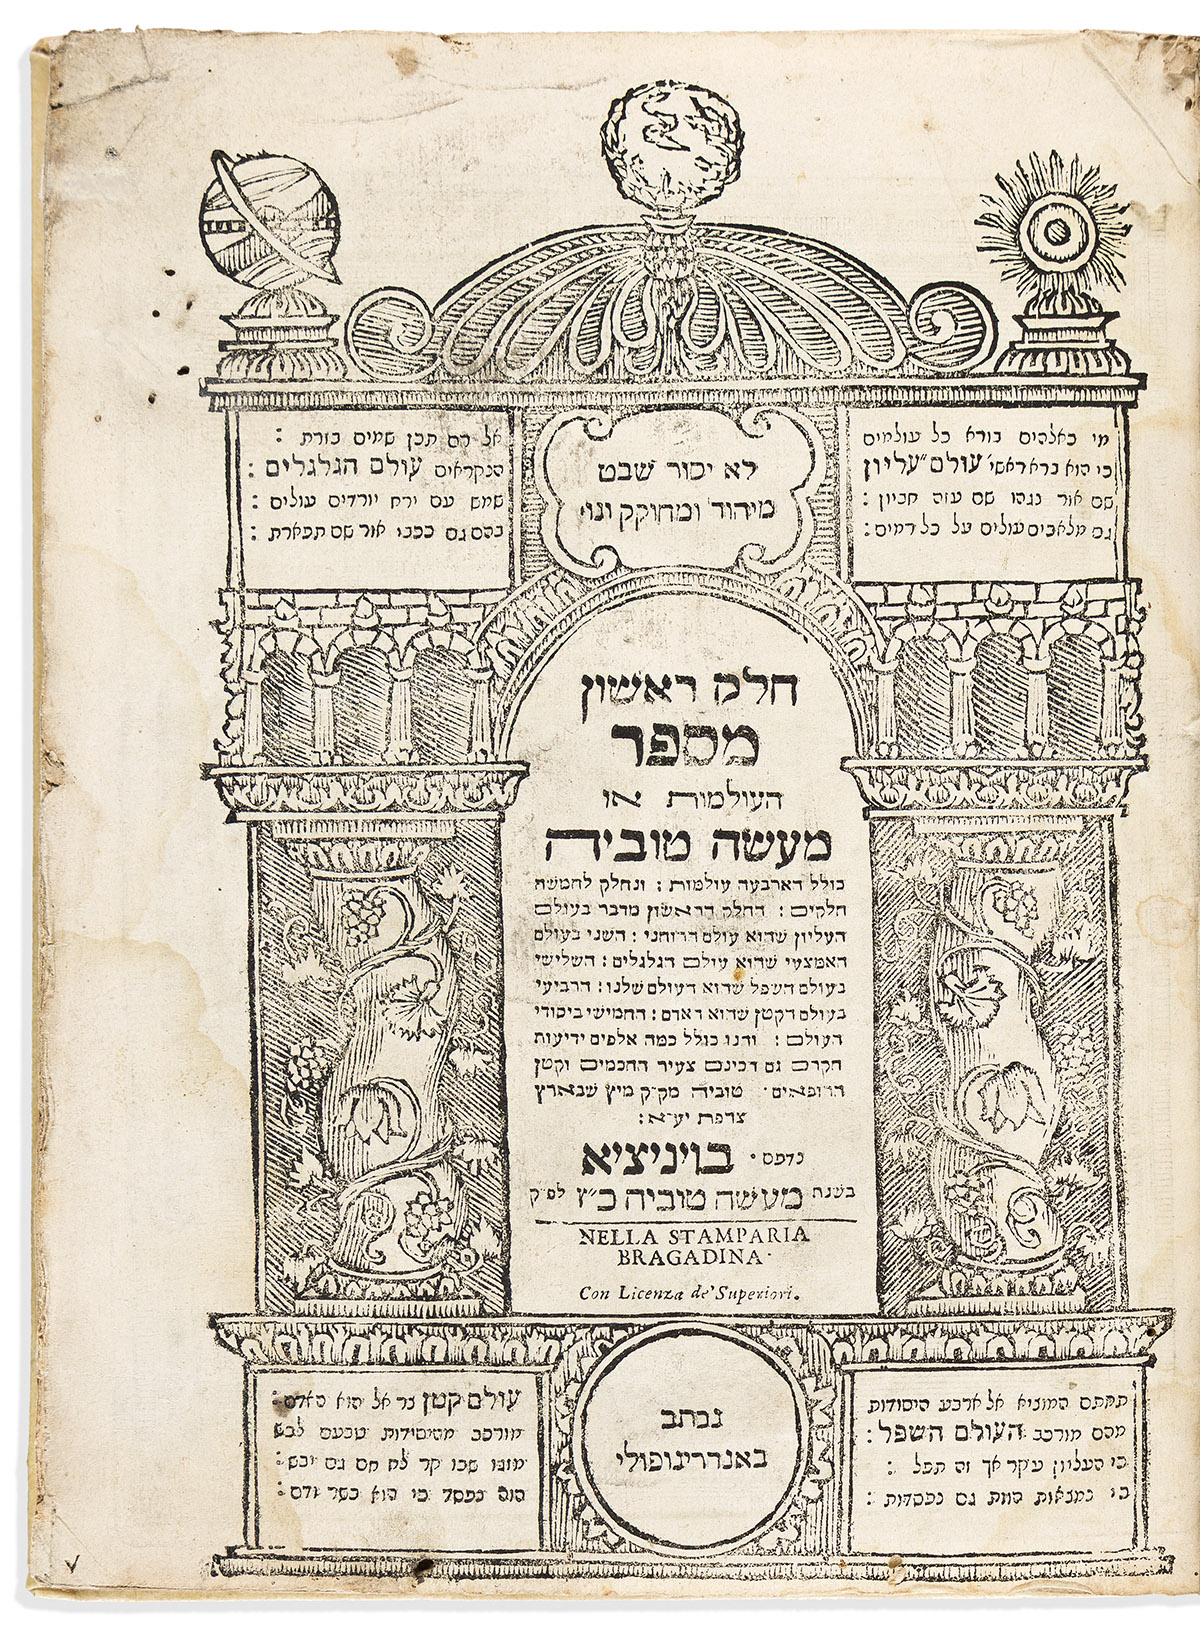 מי כאלהים בורא כל עולמים
כי הוא ברא ראשי׳ עולם עליון
שם אור נגהו שם עזה חביון :
גם מלאכים עולים על כל רמים :
לא יסור שבט
מיהוד׳ ומחוקק וגו׳
אל רם תכן שמים בזרת :
הנקראים עולם הגלגלים :
שמש עם ירח יורדים עולים :
בהם גם ככבי אור שם תפארת :
חלק ראשון
מספר
העולמות או
מעשה טוביה
כולל הארבעה עולמות : ונחלק לחמשה
חלקים : החלק הראשון מדבר בעולם
העליון שהוא עולם הרוחני : השני בעולם
האמצעי שהוא עולם הגלגלים : השלישי
בעולם השפל שהוא העולם שלנו : הרביעי
בעולם הקטן שהוא האדם : החמישי ביסודי
העולם : והנו כולל כמה אלפים ידיעות
חקרם גם הכינם צעיר החכמים וקטן
הרופאים טוביה מק״ק מיץ שבארץ
צרפת יע״א :
נדפס בויניציא
בשנת מעשה טוביה כ״ץ לפ״ק
NELLA STAMPARIA
BRAGADINA.
Con Licenza de' Superiori.
תחתם המוציא אל ארבע היסודות
מהם מורכב העולם השפל :
כי העליון עיקר אך זה תפל :
כי נמצאות הוות גם נפסדות :
נכתב
באנדרינופולי
עולם קטן נר אל הוא האדם :
מורכב מהיסודות טבעם לבש
מזגו שכו קר לח חם גם יבש :
הוה נפסד כי הוא בשר ודם :